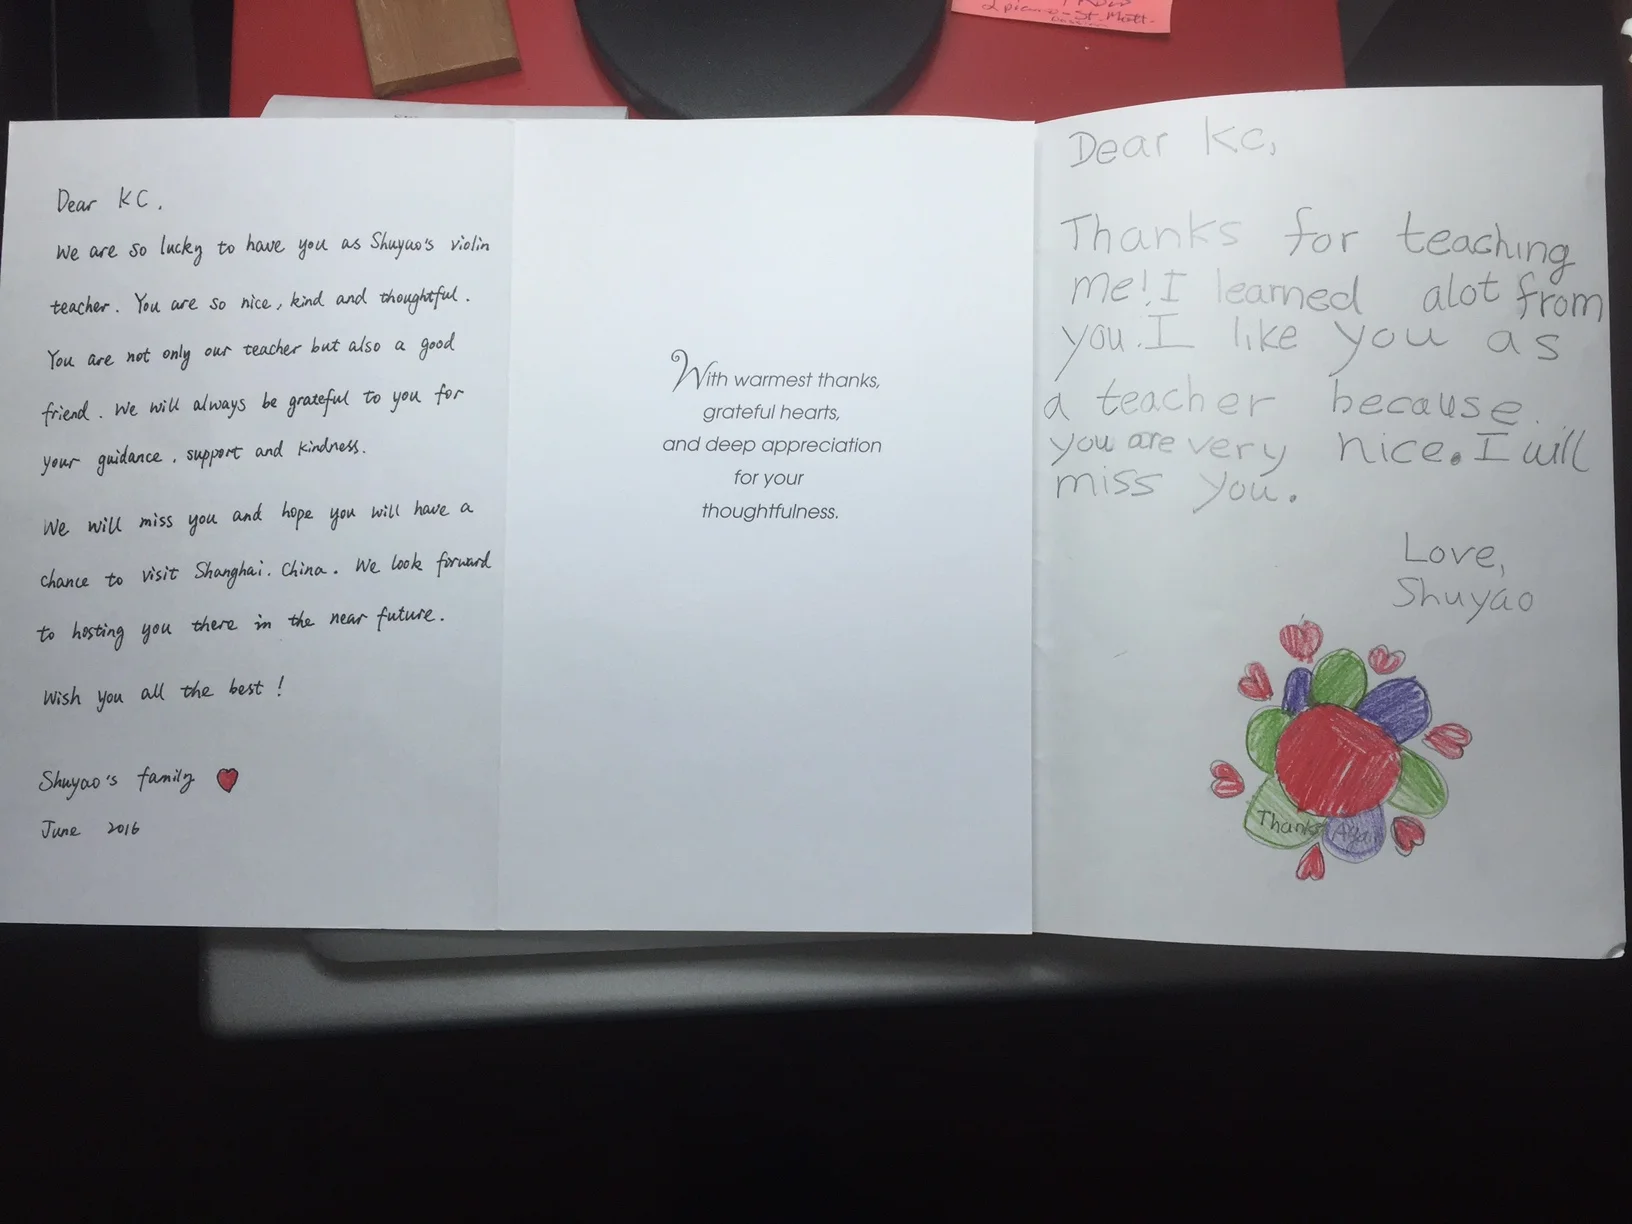 2 piano - St. Matt-
Dear KC.
We are so lucky to have you as Shuyao's violin
teacher. You are so nice, kind and thoughtful.
You are not only our teacher but also a good
friend. We will always be grateful to you for
your guidance, support and kindness.
We will miss you and hope you will have a
chance to visit Shanghai. China. We look forward
to hosting you there in the near future.
Wish you all the best!
Shuyao's family
June 2016
With warmest thanks,
grateful hearts,
and deep appreciation
for your
thoughtfulness.
Dear KC,
Thanks for teaching
me! I learned alot from
you. I like you as
a teacher because
you are very nice. I will
miss you.
Love,
Shuyao
Thanks Again